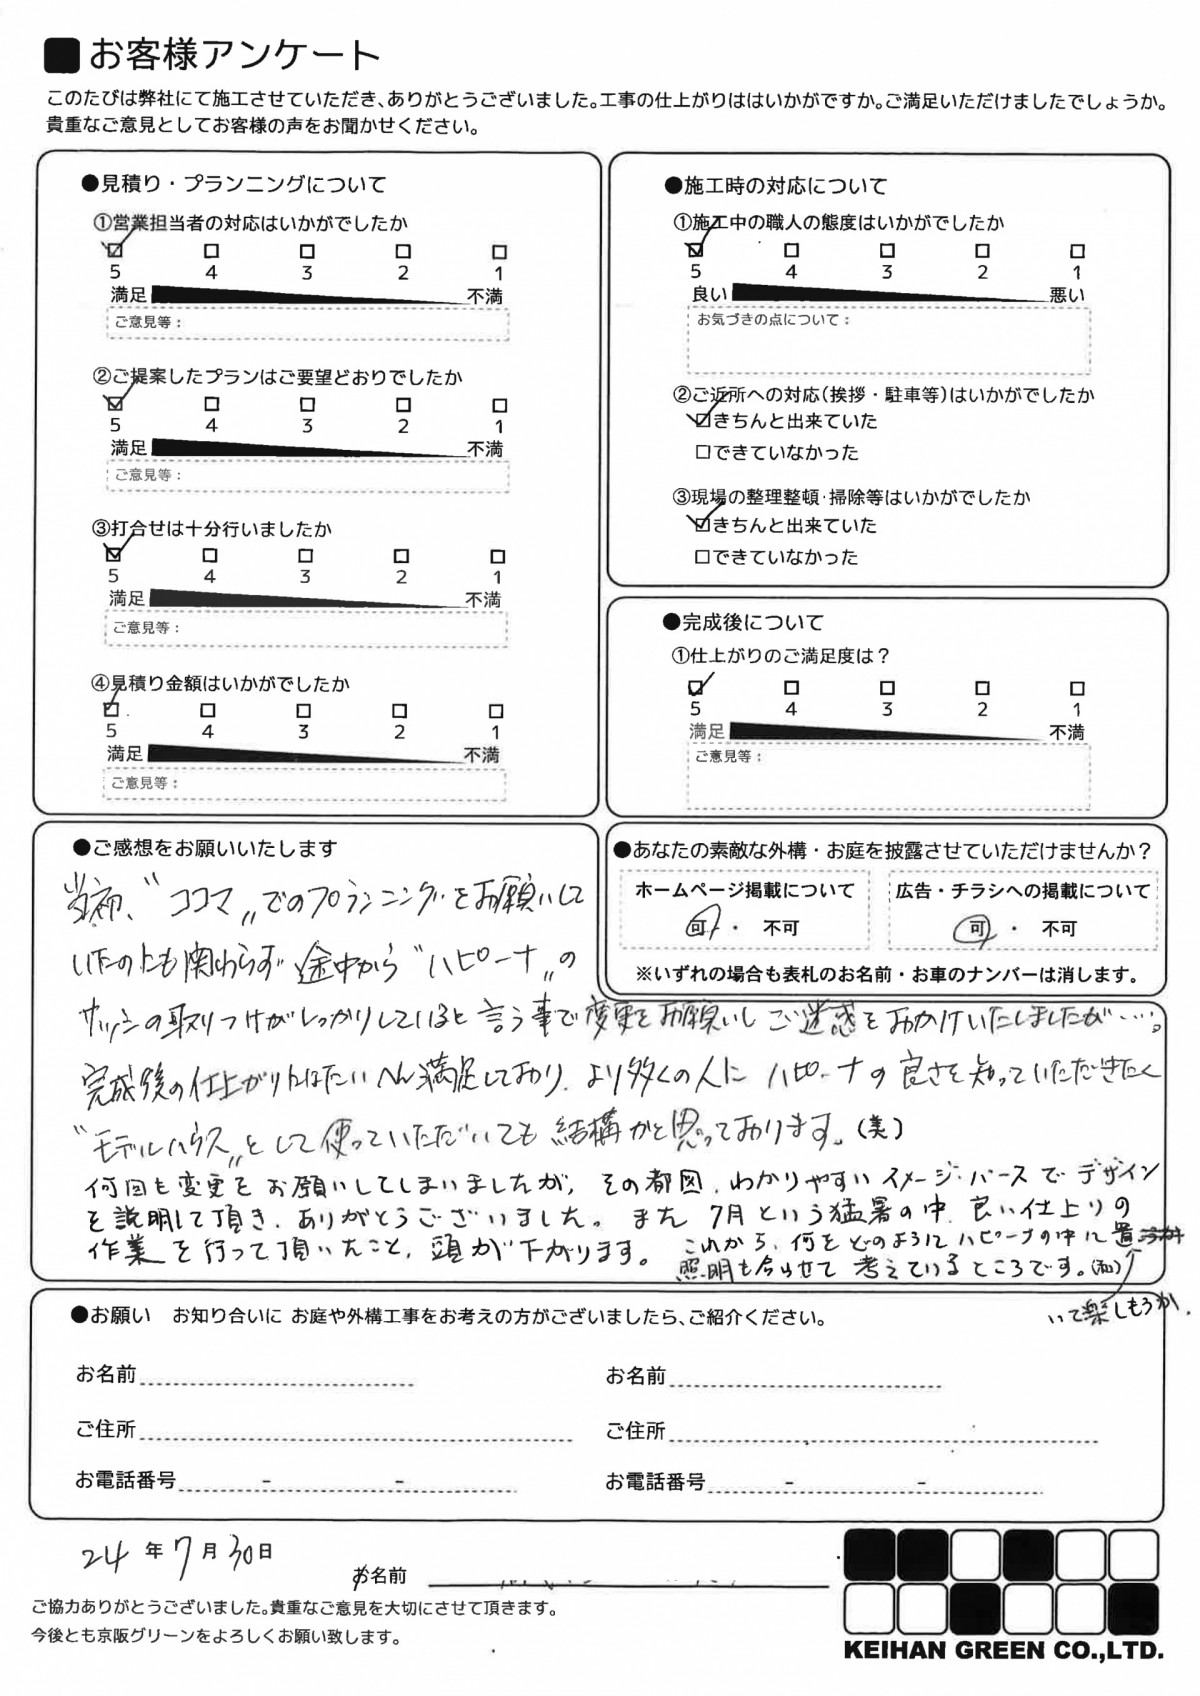 お客様アンケート
このたびは弊社にて施工させていただき、ありがとうございました。工事の仕上がりははいかがですか。ご満足いただけましたでしょうか。
貴重なご意見としてお客様の声をお聞かせください。
●見積り・プランニングについて
①営業担当者の対応はいかがでしたか
5 4 3 2 1
満足 不満
ご意見等：
②ご提案したプランはご要望どおりでしたか
5 4 3 2 1
満足 不満
ご意見等：
③打合せは十分行いましたか
5 4 3 2 1
満足 不満
ご意見等：
④見積り金額はいかがでしたか
5 4 3 2 1
満足 不満
ご意見等：
●施工時の対応について
①施工中の職人の態度はいかがでしたか
5 4 3 2 1
良い 悪い
お気づきの点について：
②ご近所への対応(挨拶・駐車等)はいかがでしたか
きちんと出来ていた
できていなかった
③現場の整理整頓・掃除等はいかがでしたか
きちんと出来ていた
できていなかった
●完成後について
①仕上がりのご満足度は？
5 4 3 2 1
満足 不満
ご意見等：
●あなたの素敵な外構・お庭を披露させていただけませんか？
ホームページ掲載について
可 ・ 不可
広告・チラシへの掲載について
可 ・ 不可
※いずれの場合も表札のお名前・お車のナンバーは消します。
●ご感想をお願いいたします
当初、〝ココマ〟でのプランニングをお願いして
いたのにも関わらず 途中から〝ハピーナ〟の
サッシの取りつけがしっかりしていると言う事で変更をお願いしご迷惑をおかけいたしましたが…。
完成後の仕上がりはたいへん満足しており、より多くの人に ハピーナの良さを知っていただきたく
〝モデルハウス〟として使っていただいても結構かと思っております。(美)
何回も変更をお願いしてしまいましたが、その都図、わかりやすいイメージ・パースでデザイン
を説明して頂き、ありがとうございました。また 7月という猛暑の中、良い仕上りの
作業を行って頂いたこと、頭が下がります。 これから、何をどのようにハピーナの中に置
いて楽しもうか、
照明も合わせて 考えているところです。(和)
●お願い お知り合いに お庭や外構工事をお考えの方がございましたら、ご紹介ください。
お名前 お名前
ご住所 ご住所
お電話番号 - - お電話番号 - -
24 年 7 月 30 日
お名前
ご協力ありがとうございました。貴重なご意見を大切にさせて頂きます。
今後とも京阪グリーンをよろしくお願い致します。
KEIHAN GREEN CO.,LTD.